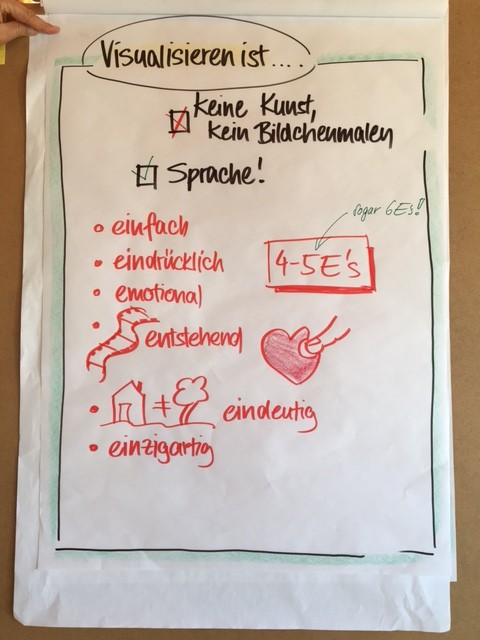 Visualisieren ist....
keine Kunst,
kein Bildchenmalen
Sprache!
sogar 6 Es!
• einfach
• eindrücklich
4-5 E's
• emotional
• entstehend
• + eindeutig
• einzigartig